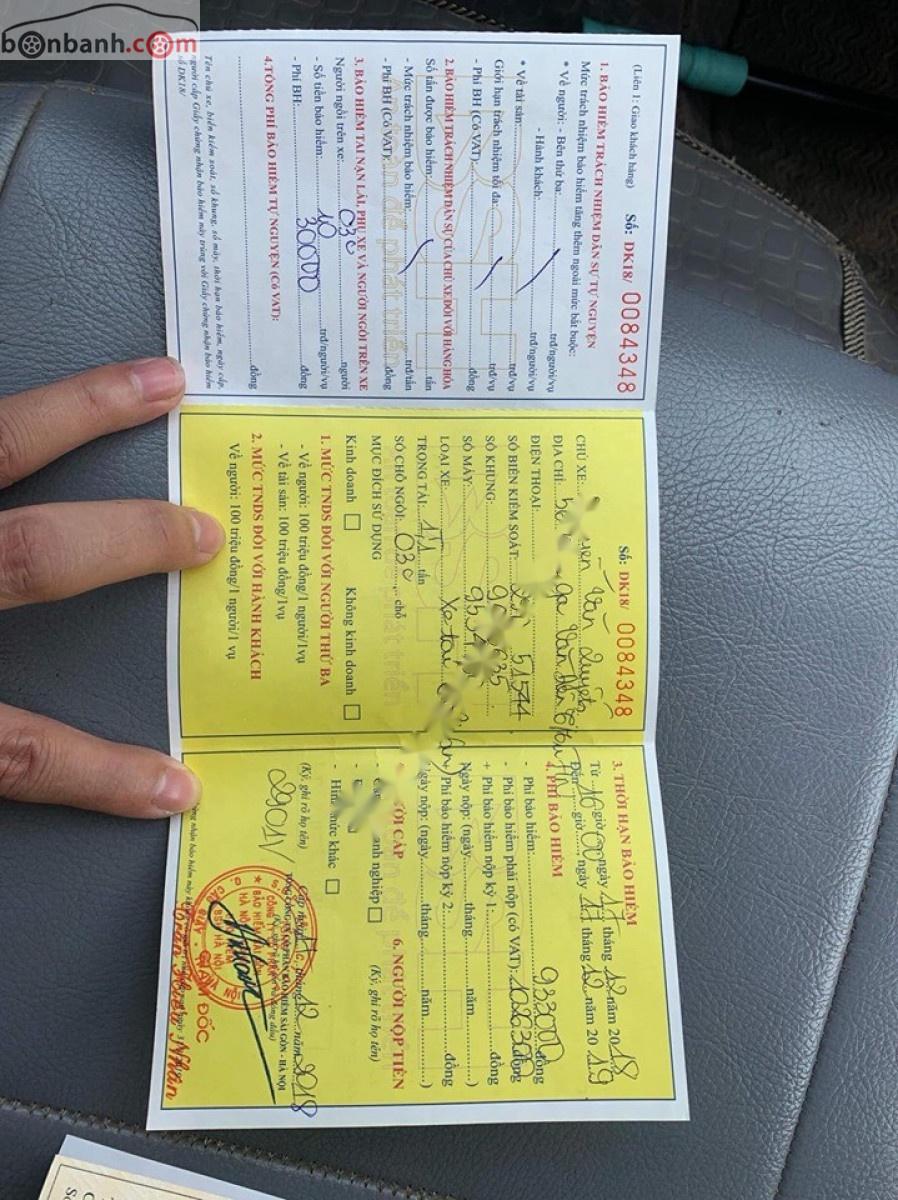 bonbanh.com
(Liên 1: Giao khách hàng)
Số: DK18/ 0084348
1. BẢO HIỂM TRÁCH NHIỆM DÂN SỰ TỰ NGUYỆN
Mức trách nhiệm bảo hiểm tăng thêm ngoài mức bắt buộc:
* Về người: - Bên thứ ba:..........trđ/người/vụ
- Hành khách:..........trđ/người/vụ
* Về tài sản:..........trđ/vụ
Giới hạn trách nhiệm tối đa:..........trđ/vụ
- Phí BH (Có VAT):..........đồng
2. BẢO HIỂM TRÁCH NHIỆM DÂN SỰ CỦA CHỦ XE ĐỐI VỚI HÀNG HÓA
Số tấn được bảo hiểm:..........tấn
- Mức trách nhiệm bảo hiểm:..........trđ/tấn
- Phí BH (Có VAT):..........đồng
3. BẢO HIỂM TAI NẠN LÁI, PHỤ XE VÀ NGƯỜI NGỒI TRÊN XE
Người ngồi trên xe: 03c người
- Số tiền bảo hiểm: 10 trđ/người/vụ
- Phí BH: 30000 đồng
4.TỔNG PHÍ BẢO HIỂM TỰ NGUYỆN (Có VAT):
..........đồng
Tên chủ xe, biển kiểm soát, số khung, số máy, thời hạn bảo hiểm, ngày cấp,
người cấp Giấy chứng nhận bảo hiểm này trùng với Giấy chứng nhận bảo hiểm
số DK18/
Số: DK18/ 0084348
CHỦ XE: Văn
ĐỊA CHỈ:
ĐIỆN THOẠI:
SỐ BIỂN KIỂM SOÁT: 51544
SỐ KHUNG:
SỐ MÁY:
LOẠI XE: Xe tải
TRỌNG TẢI: 1,1 tấn
SỐ CHỖ NGỒI: 03c chỗ
MỤC ĐÍCH SỬ DỤNG
Kinh doanh □ Không kinh doanh □
1. MỨC TNDS ĐỐI VỚI NGƯỜI THỨ BA
- Về người: 100 triệu đồng/1 người/1vụ
- Về tài sản: 100 triệu đồng/1vụ
2. MỨC TNDS ĐỐI VỚI HÀNH KHÁCH
Về người: 100 triệu đồng/1 người/1 vụ
3. THỜI HẠN BẢO HIỂM
Từ 16 giờ 00 ngày 17 tháng 12 năm 2018
Đến ...... giờ......, ngày 17 tháng 12 năm 2019
4. PHÍ BẢO HIỂM
- Phí bảo hiểm: 933000 đồng
- Phí bảo hiểm phải nộp (có VAT): 1026300 đồng
+ Phí bảo hiểm nộp kỳ 1:..........đồng
Ngày nộp: (ngày..........tháng..........năm..........)
Phí bảo hiểm nộp kỳ 2:..........đồng
Ngày nộp: (ngày..........tháng..........năm..........)
6. NGƯỜI NỘP TIỀN
(Ký, ghi rõ họ tên)
Hình thức khác □
(Ký, ghi rõ họ tên)
2901V
tháng 12 năm 2018
TỔNG CÔNG TY CỔ PHẦN BẢO HIỂM SÀI GÒN - HÀ NỘI